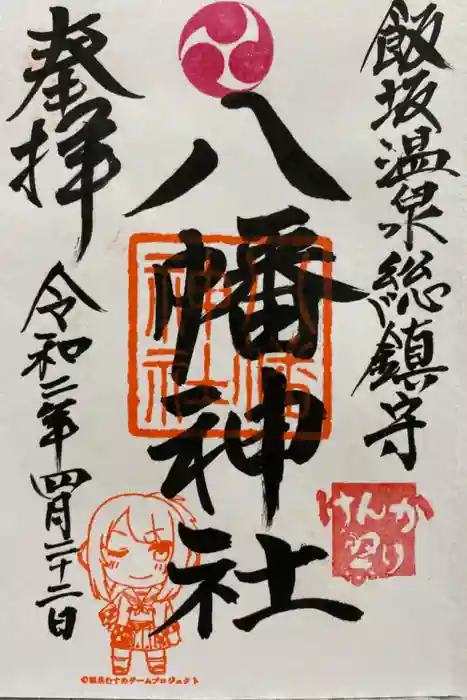 飯坂温泉総鎮守
八幡神社
八幡
神社
けんか
祭り
奉拝
令和二年四月二十二日
©飯坂むすめゲームプロジェクト